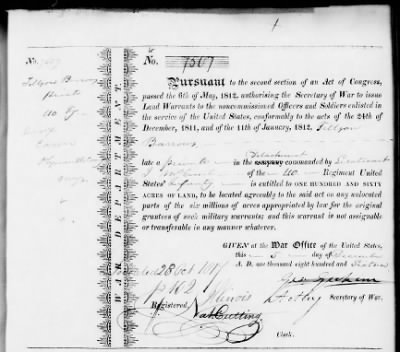 No. 7567
Pursuant to the second section of an Act of Congress,
passed the 6th of May, 1812, authorising the Secretary of War to issue
Land Warrants to the noncommissioned Officers and Soldiers enlisted in
the service of the United States, conformably to the acts of the 24th of
December, 1811, and of the 11th of January, 1812.
Barrows
late a private in the Detachment company commanded by Lieutenant
of the 40 Regiment United
States' Infantry is entitled to ONE HUNDRED AND SIXTY
ACRES OF LAND, to be located agreeably to the said act on any unlocated
parts of the six millions of acres appropriated by law for the original
grantees of such military warrants; and this warrant is not assignable
or transferable in any manner whatever.
GIVEN at the War Office of the United States,
this 5 day of December
A. D. one thousand eight hundred and
28 Oct 1817
Geo Graham
Illinois
Secretary of War.
Registered, Nat Cutting
Clerk.
No.
WAR DEPARTMENT.